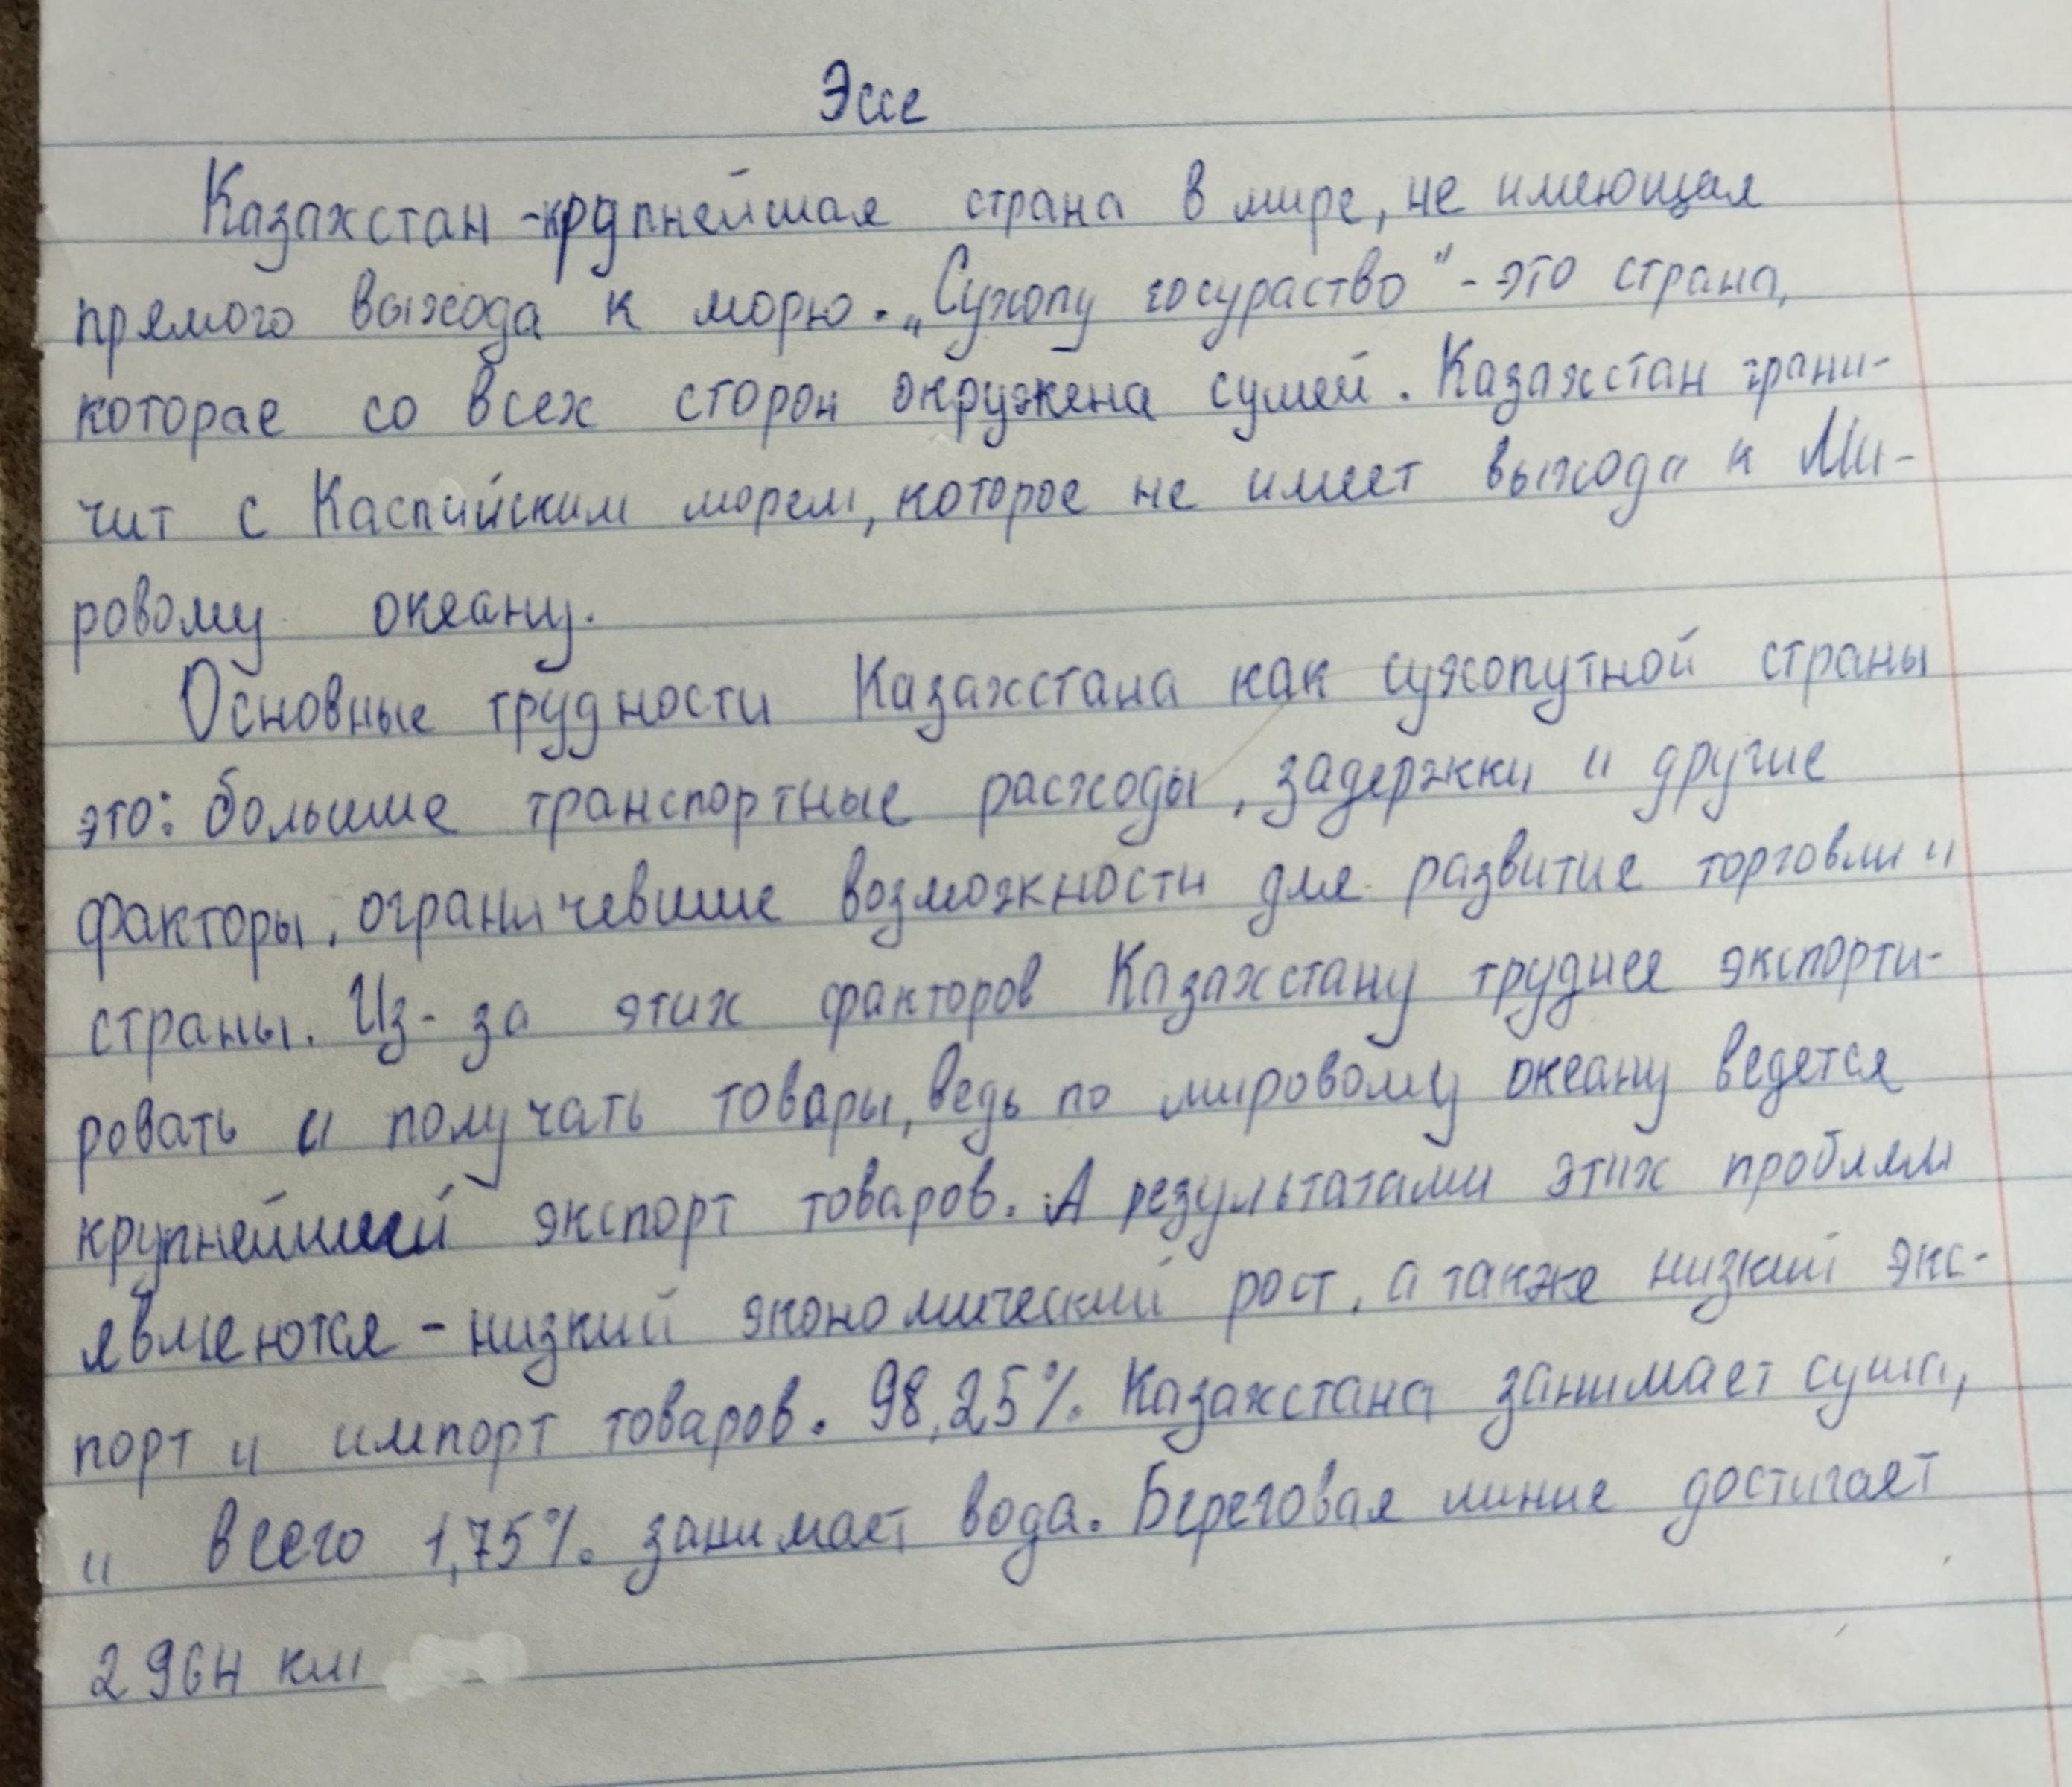 Эссе
Казахстан - крупнейшая страна в мире, не имеющая
прямого выхода к морю. „Сухопу госураство" - это страна,
которае со всех сторон окружена сушей. Казахстан грани-
чит с Каспийским морем, которое не имеет выхода к Ми-
ровому океану.
Основные трудности Казахстана как сухопутной страны
это: большие транспортные расходы, задержки и другие
факторы, ограничевшие возможности для развитие торговли и
страны. Из-за этих факторов Казахстану труднее экспорти-
ровать и получать товары, ведь по мировому океану ведется
крупнейший экспорт товаров. А результатами этих проблем
являеются - низкий экономический рост, а также низкий экс-
порт и импорт товаров. 98,25% Казахстана занимает суша,
и всего 1,75% занимает вода. Береговая линие достигает
2964 км